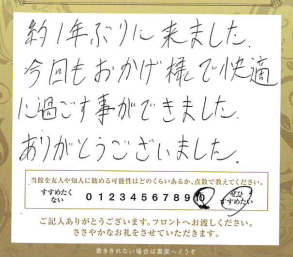 約1年ぶりに来ました.
今回もおかげ様で快適
に過ごす事ができました.
ありがとうございました.
当館を友人や知人に勧める可能性はどのくらいあるか、点数で教えてください。
すすめたくない 0 1 2 3 4 5 6 7 8 9 10 ぜひすすめたい
ご記入ありがとうございます。フロントへお渡しください。
ささやかなお礼をさせていただきます。
書ききれない場合は裏面へどうぞ